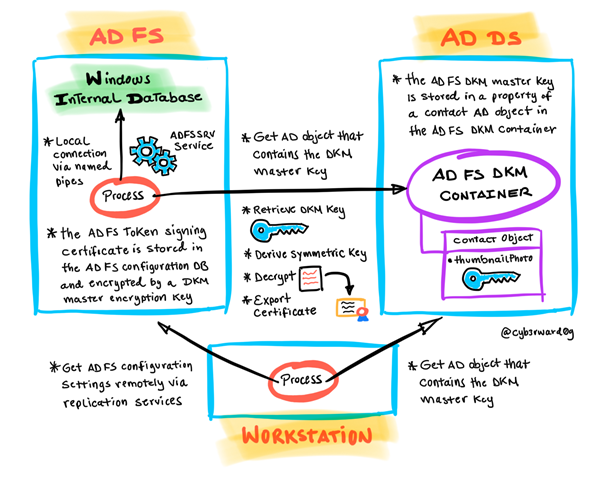 AD FS
AD DS
Windows
Internal Database
* Local
connection
via named
pipes
ADFSSRV
Service
Process
* the ADFS Token signing
certificate is stored in
the ADFS configuration DB
and encrypted by a DKM
master encryption key
* Get AD object that
contains the DKM
master key
* Retrieve DKM key
* Derive symmetric key
* Decrypt
* Export
Certificate
* the AD FS DKM master key
is stored in a property of
a contact AD object in
the AD FS DKM container
AD FS DKM
CONTAINER
contact Object
• thumbnailPhoto
@cyb3rward0g
* Get ADFS configuration
settings remotely via
replication services
Process
* Get AD object that
contains the DKM
master key
WORKSTATION